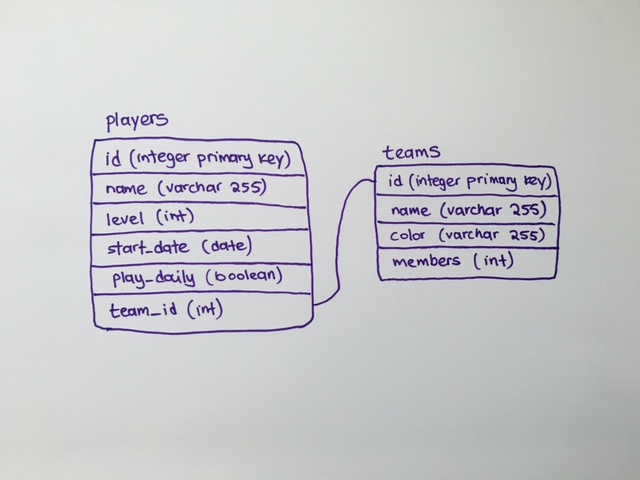 players
id (integer primary key)
name (varchar 255)
level (int)
start_date (date)
play_daily (boolean)
team_id (int)
teams
id (integer primary key)
name (varchar 255)
color (varchar 255)
members (int)